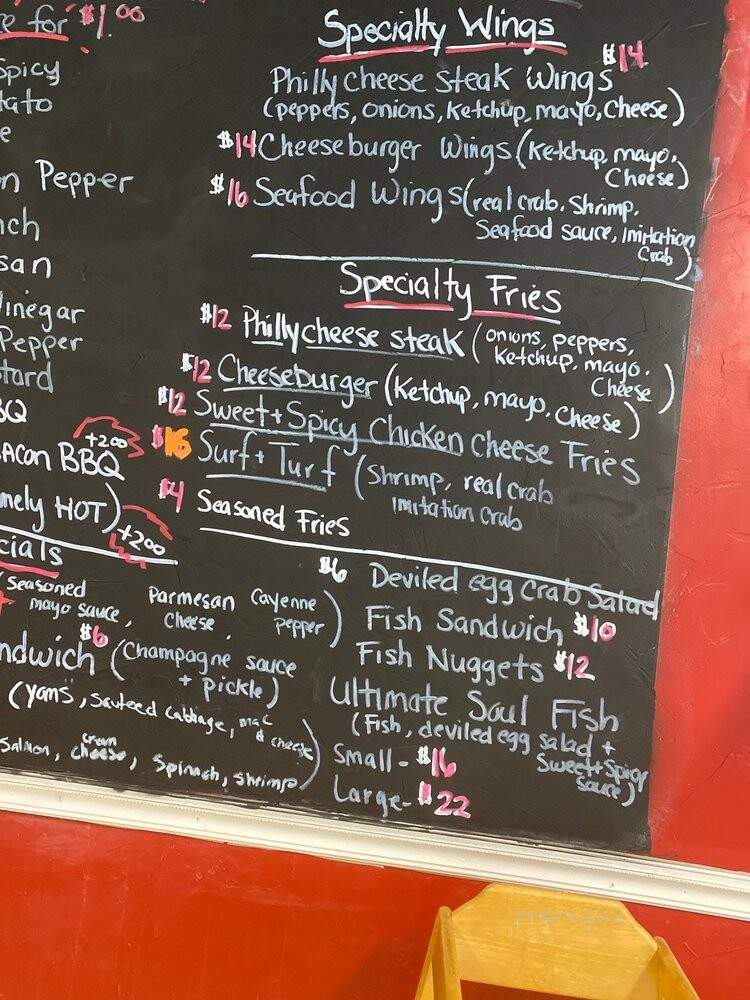 e for $1.00
Spicy
tato
e
n Pepper
nch
san
Vinegar
Pepper
tard
BQ
+200
acon BBQ
mely HOT)
+200
cials
(seasoned
mayo sauce, Parmesan cheese, Cayenne pepper)
ndwich $6 (Champagne sauce
+ pickle)
(yams, sauteed cabbage, mac & cheese
Salmon, cream cheese, Spinach, shrimp)
Specialty Wings
$14
Philly cheese steak Wings
(peppers, onions, Ketchup, mayo, Cheese)
$14 Cheeseburger Wings (Ketchup, mayo,
Cheese)
$16 Seafood Wings (real crab, Shrimp,
Seafood sauce, imitation
Crab)
Specialty Fries
$12 Phillycheese steak (onions, peppers,
Ketchup, mayo,
Cheese)
$12 Cheeseburger (Ketchup, mayo, Cheese)
$12 Sweet + Spicy Chicken Cheese Fries
$16 Surf + Turf (Shrimp, real crab
imitation crab
$4 Seasoned Fries
$6 Deviled egg crab Salad
Fish Sandwich $10
Fish Nuggets $12
Ultimate Soul Fish
(Fish, deviled egg salad +
Sweet + Spicy
Sauce)
Small - $16
Large - $22